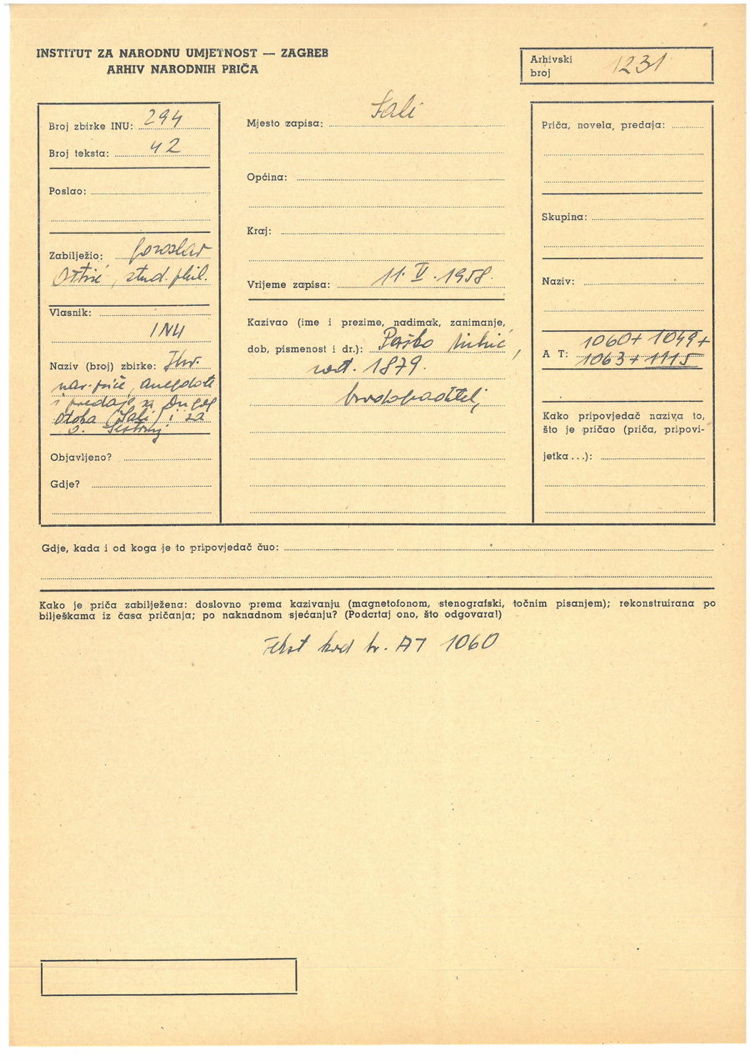 INSTITUT ZA NARODNU UMJETNOST — ZAGREB
ARHIV NARODNIH PRIČA
Arhivski
broj 1231
Broj zbirke INU: 294
Broj teksta: 42
Poslao:
Zabilježio:
stud. phil.
Vlasnik:
INU
Naziv (broj) zbirke: Hrv.
nar. priče, anegdote
i predaje
otoka (Sali) i sa
Objavljeno?
Gdje?
Mjesto zapisa: Sali
Općina:
Kraj:
Vrijeme zapisa: 11. V. 1958.
Kazivao (ime i prezime, nadimak, zanimanje,
dob, pismenost i dr.): Paško
rođ. 1879.
Priča, novela, predaja:
Skupina:
Naziv:
A T: 1060+ 1049+
1063+ 1115
Kako pripovjedač naziva to,
što je pričao (priča, pripovi-
jetka...):
Gdje, kada i od koga je to pripovjedač čuo:
Kako je priča zabilježena: doslovno prema kazivanju (magnetofonom, stenografski, točnim pisanjem); rekonstruirana po
bilješkama iz časa pričanja; po naknadnom sjećanju? (Podcrtaj ono, što odgovara!)
Tekst kod br. AT 1060